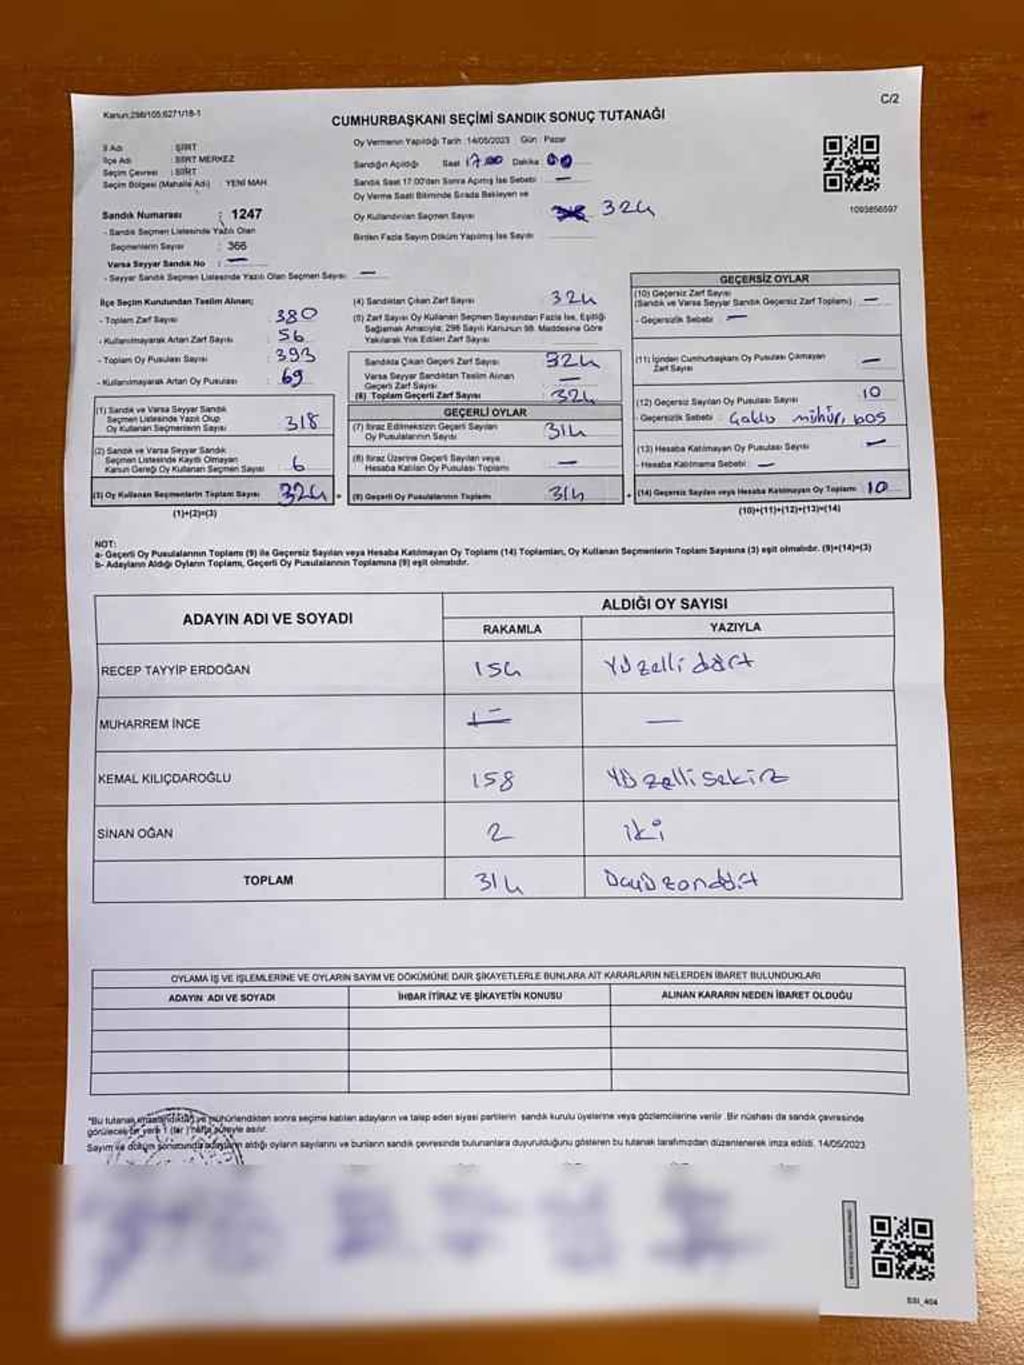 Kanun;298/105;6271/18-1
C/2
CUMHURBAŞKANI SEÇİMİ SANDIK SONUÇ TUTANAĞI
İl Adı : SİİRT
İlçe Adı : SİİRT MERKEZ
Seçim Çevresi : SİİRT
Seçim Bölgesi (Mahalle Adı) YENİ MAH.
Sandık Numarası : 1247
- Sandık Seçmen Listesinde Yazılı Olan
Seçmenlerin Sayısı : 366
Varsa Seyyar Sandık No : —
- Seyyar Sandık Seçmen Listesinde Yazılı Olan Seçmen Sayısı: —
Oy Vermenin Yapıldığı Tarih :14/05/2023 Gün : Pazar
Sandığın Açıldığı Saat 17.00 Dakika: 00
Sandık Saat 17:00'dan Sonra Açılmış İse Sebebi: —
Oy Verme Saati Bitiminde Sırada Bekleyen ve
Oy Kullandırılan Seçmen Sayısı 324
Birden Fazla Sayım Döküm Yapılmış İse Sayısı
1093856597
İlçe Seçim Kurulundan Teslim Alınan;
- Toplam Zarf Sayısı : 380
- Kullanılmayarak Artan Zarf Sayısı : 56
- Toplam Oy Pusulası Sayısı : 393
- Kullanılmayarak Artan Oy Pusulası : 69
(1) Sandık ve Varsa Seyyar Sandık
Seçmen Listesinde Yazılı Olup
Oy Kullanan Seçmenlerin Sayısı : 318
(2) Sandık ve Varsa Seyyar Sandık
Seçmen Listesinde Kayıtlı Olmayan
Kanun Gereği Oy Kullanan Seçmen Sayısı : 6
(3) Oy Kullanan Seçmenlerin Toplam Sayısı : 324
(1)+(2)=(3)
(4) Sandıktan Çıkan Zarf Sayısı : 324
(5) Zarf Sayısı Oy Kullanan Seçmen Sayısından Fazla İse, Eşitliği
Sağlamak Amacıyla; 298 Sayılı Kanunun 98. Maddesine Göre
Yakılarak Yok Edilen Zarf Sayısı
Sandıkta Çıkan Geçerli Zarf Sayısı : 324
Varsa Seyyar Sandıktan Teslim Alınan
Geçerli Zarf Sayısı : —
(6) Toplam Geçerli Zarf Sayısı : 324
GEÇERLİ OYLAR
(7) İtiraz Edilmeksizin Geçerli Sayılan
Oy Pusulalarının Sayısı : 314
(8) İtiraz Üzerine Geçerli Sayılan veya
Hesaba Katılan Oy Pusulası Toplamı : —
(9) Geçerli Oy Pusulalarının Toplamı : 314
GEÇERSİZ OYLAR
(10) Geçersiz Zarf Sayısı
(Sandık ve Varsa Seyyar Sandık Geçersiz Zarf Toplamı) : —
- Geçersizlik Sebebi : —
(11) İçinden Cumhurbaşkanı Oy Pusulası Çıkmayan
Zarf Sayısı : —
(12) Geçersiz Sayılan Oy Pusulası Sayısı : 10
- Geçersizlik Sebebi : Çoklu mühür, boş
(13) Hesaba Katılmayan Oy Pusulası Sayısı : —
- Hesaba Katılmama Sebebi : —
(14) Geçersiz Sayılan veya Hesaba Katılmayan Oy Toplamı : 10
(10)+(11)+(12)+(13)=(14)
NOT:
a- Geçerli Oy Pusulalarının Toplamı (9) ile Geçersiz Sayılan veya Hesaba Katılmayan Oy Toplamı (14) Toplamları, Oy Kullanan Seçmenlerin Toplam Sayısına (3) eşit olmalıdır. (9)+(14)=(3)
b- Adayların Aldığı Oyların Toplamı, Geçerli Oy Pusulalarının Toplamına (9) eşit olmalıdır.
ADAYIN ADI VE SOYADI
ALDIĞI OY SAYISI
RAKAMLA YAZIYLA
RECEP TAYYİP ERDOĞAN 154 Yüzellidört
MUHARREM İNCE — —
KEMAL KILIÇDAROĞLU 158 Yüzellisekiz
SİNAN OĞAN 2 iki
TOPLAM 314 Üçyüzondört
OYLAMA İŞ VE İŞLEMLERİNE VE OYLARIN SAYIM VE DÖKÜMÜNE DAİR ŞİKAYETLERLE BUNLARA AİT KARARLARIN NELERDEN İBARET BULUNDUKLARI
ADAYIN ADI VE SOYADI İHBAR İTİRAZ VE ŞİKAYETİN KONUSU ALINAN KARARIN NEDEN İBARET OLDUĞU
*Bu tutanak imzalandıktan ve mühürlendikten sonra seçime katılan adayların ve talep eden siyasi partilerin sandık kurulu üyelerine veya gözlemcilerine verilir. Bir nüshası da sandık çevresinde
görülecek bir yere 1 (bir) hafta süreyle asılır.
Sayım ve döküm sonucunda adayların aldığı oyların sayılarını ve bunların sandık çevresinde bulunanlara duyurulduğunu gösteren bu tutanak tarafımızdan düzenlenerek imza edildi. 14/05/2023
SSI_404